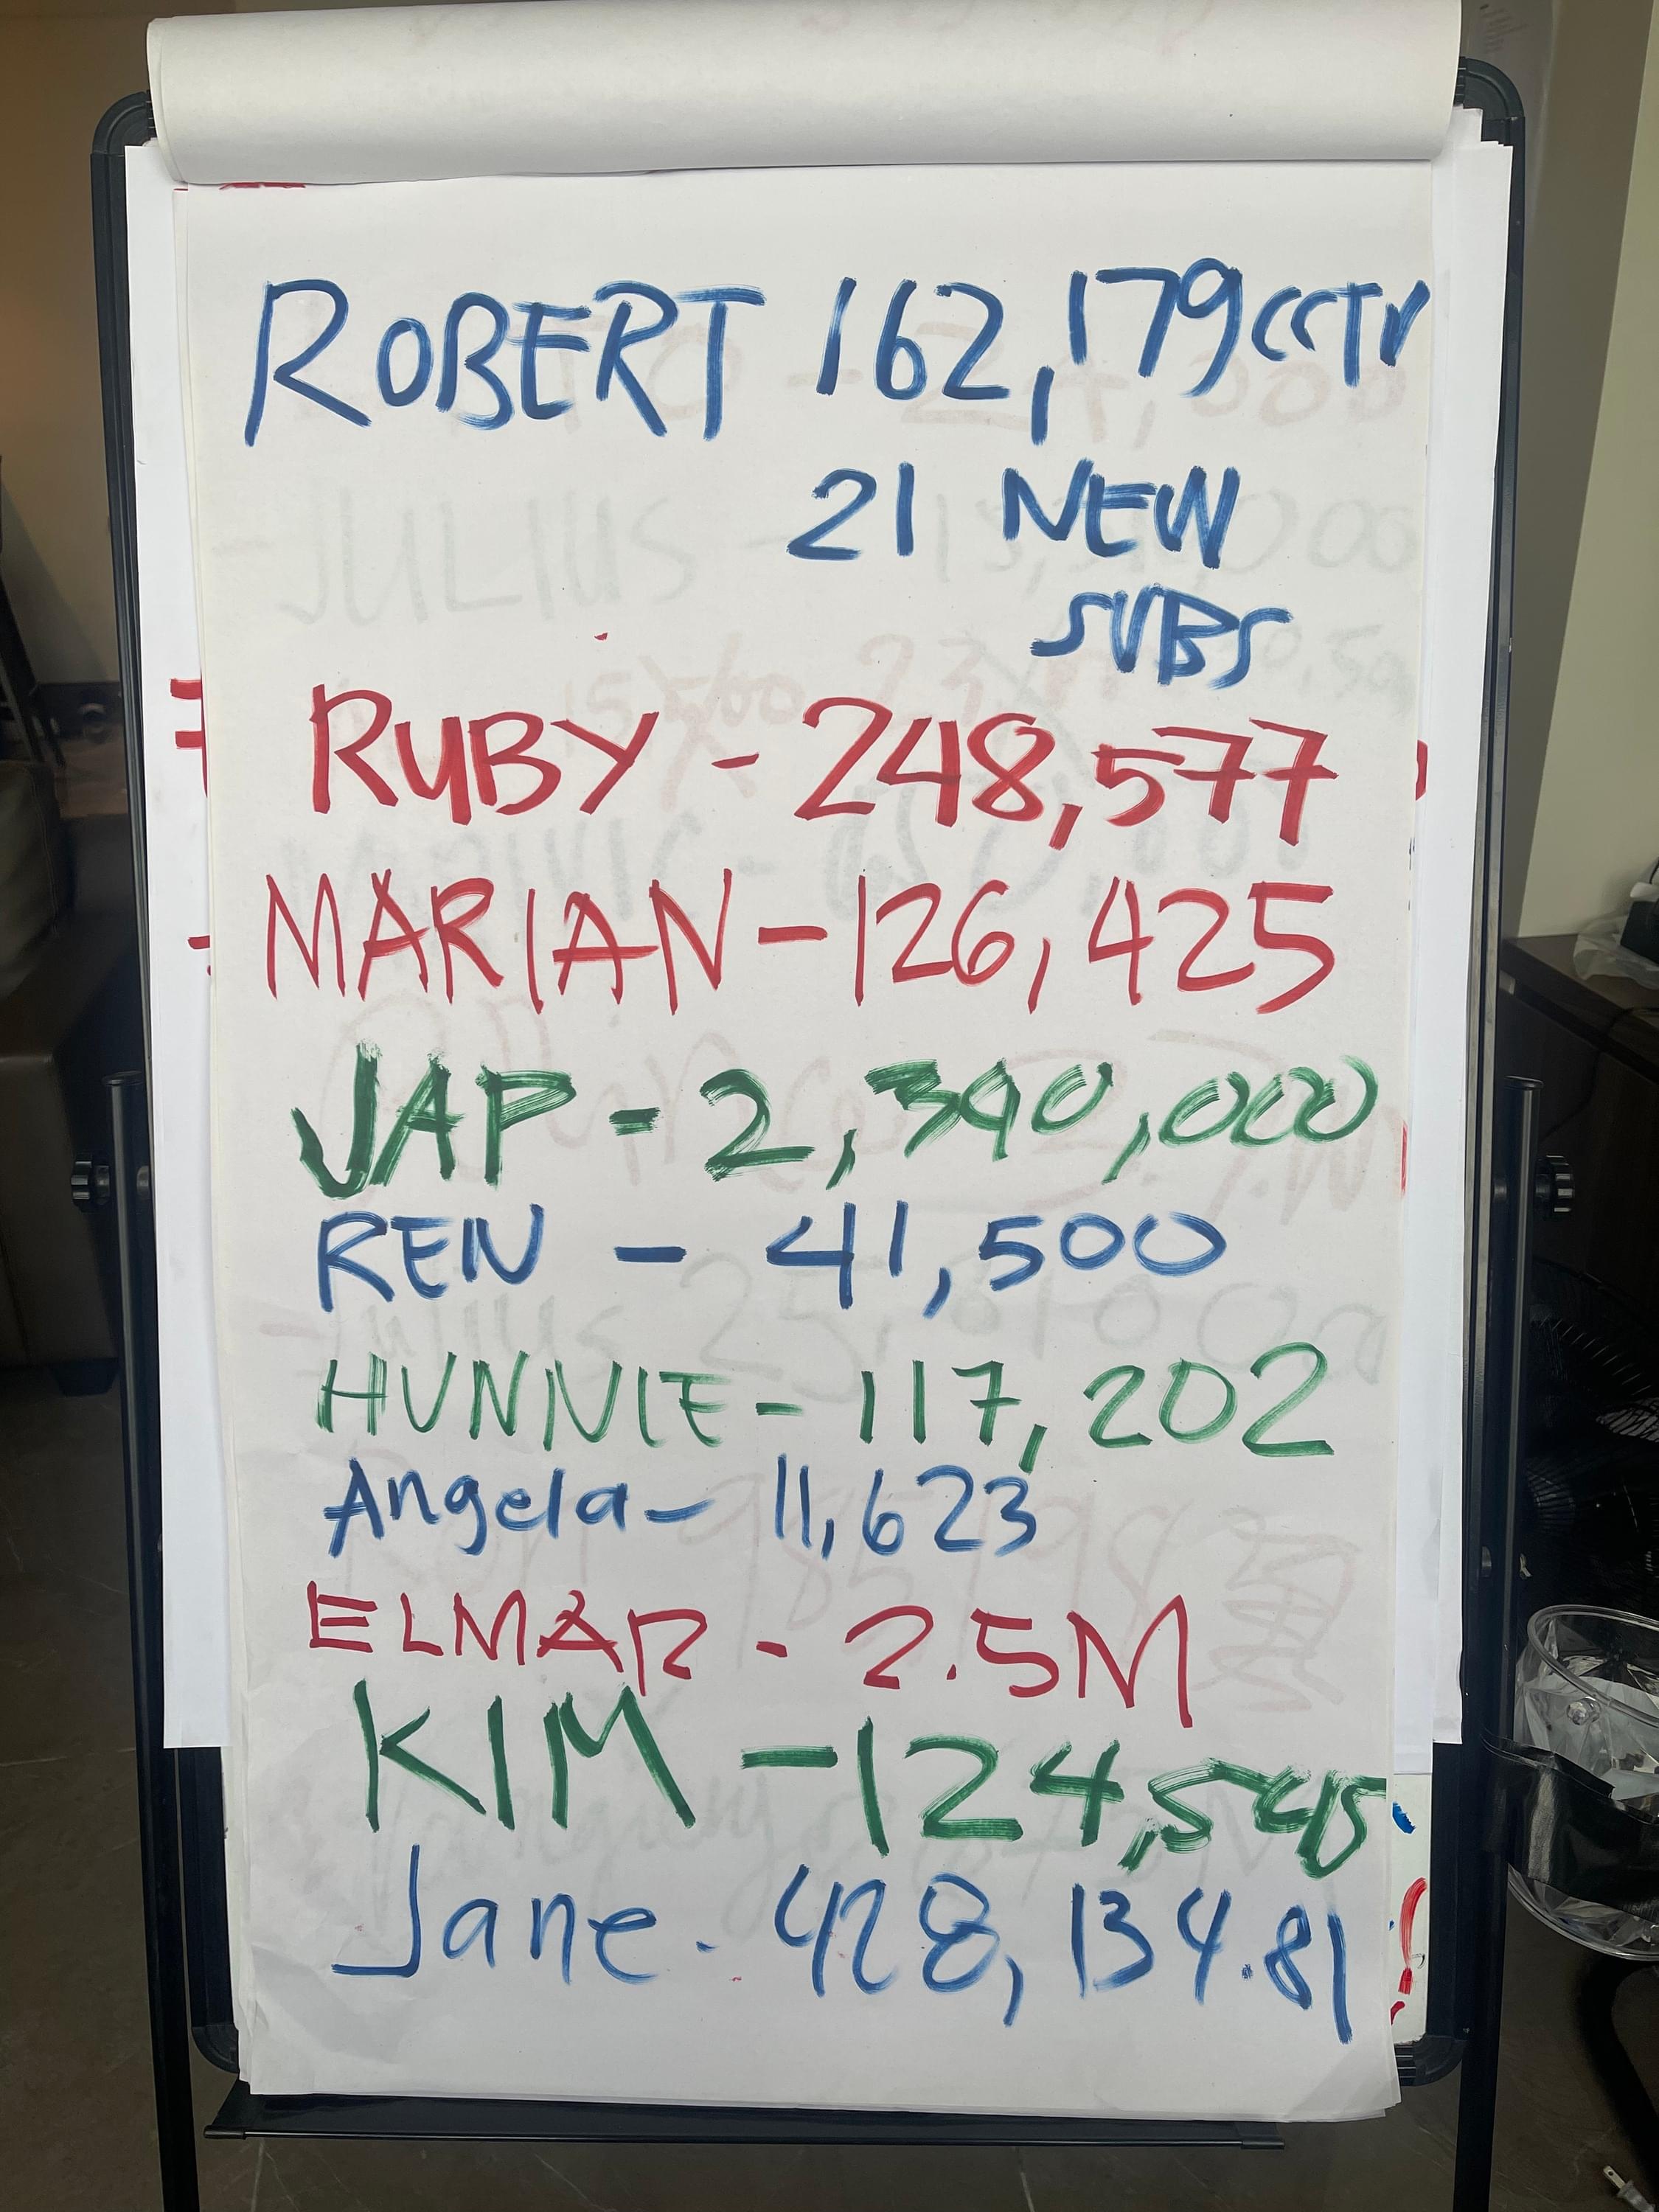 ROBERT 162,179 CCTV
21 NEW
SUBS
RUBY - 248,577
MARIAN - 126,425
JAP - 2,390,000
REN - 41,500
HUNNIE - 117,202
Angela - 11,623
ELMAR - 2.5M
KIM - 124,545
Jane - 428,134.81